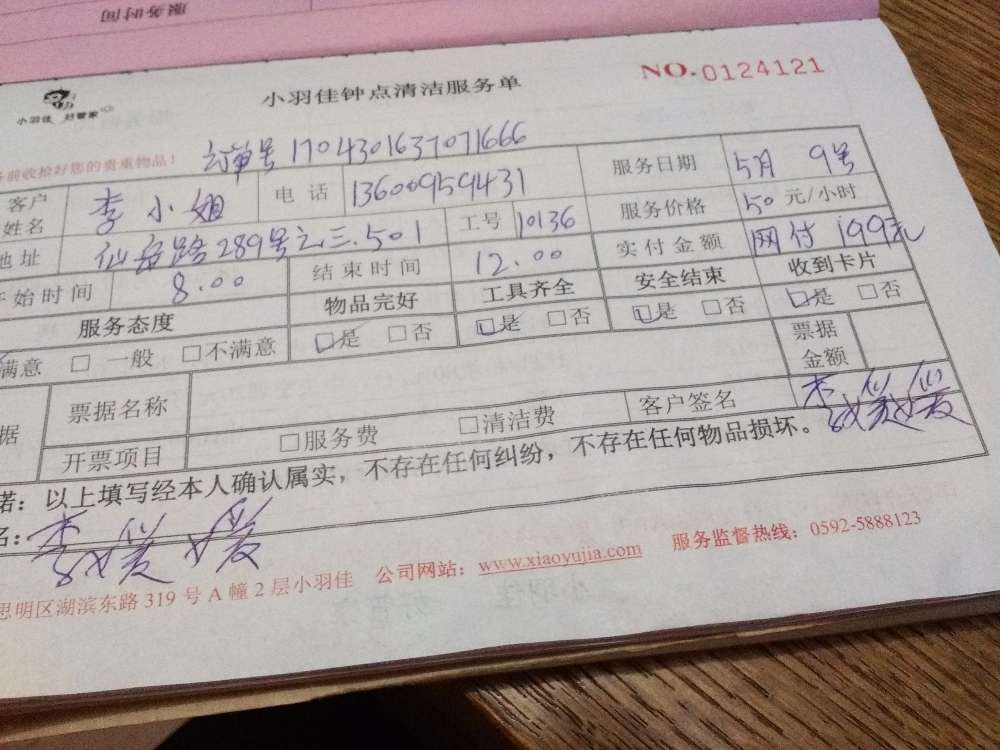 服务时间
小羽佳 好管家
小羽佳钟点清洁服务单
NO.0124121
前收拾好您的贵重物品！
订单号 1704301637071666
客户姓名 李小姐 电话 13600959431 服务日期 5月 9号
地址 仙岳路289号之三.501 工号 10136 服务价格 50 元/小时
开始时间 8.00 结束时间 12.00 实付金额 网付 199元
服务态度 物品完好 工具齐全 安全结束 收到卡片
满意 □ 一般 □不满意 □是 □否 □是 □否 □是 □否 □是 □否
据 票据名称 票据金额
开票项目 □服务费 □清洁费 客户签名 李媛媛
诺：以上填写经本人确认属实，不存在任何纠纷，不存在任何物品损坏。
名：李媛媛
思明区湖滨东路 319 号 A 幢 2 层小羽佳 公司网站：www.xiaoyujia.com 服务监督热线：0592-5888123